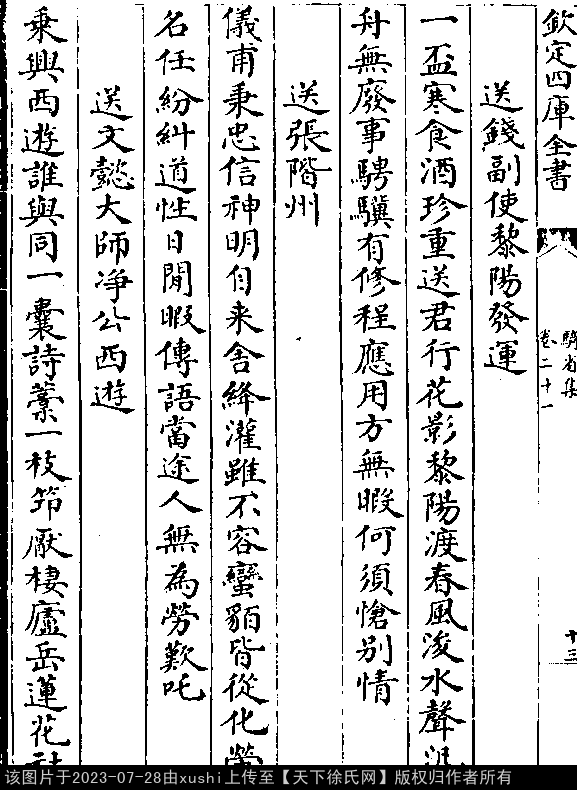 欽定四庫全書
騎省集
卷二十一
十三
送錢副使黎陽發運
一盃寒食酒珍重送君行花影黎陽渡春風浚水聲汎
舟無廢事騁驥有修程應用方無暇何須愴别情
送張階州
儀甫秉忠信神明自来舍絳灌雖不容蠻貊皆從化榮
名任紛糾道性日閒暇傳語當途人無為勞歎吒
送文懿大師净公西遊
乘興西遊誰與同一囊詩藁一枝筇厭棲廬岳蓮花社
该图片于2023-07-28由xushi上传至【天下徐氏网】版权归作者所有